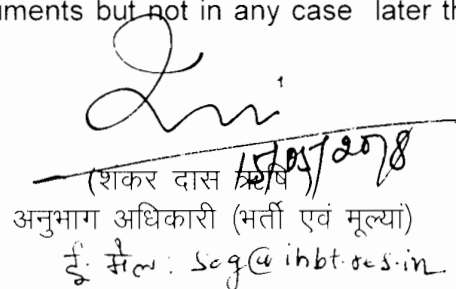 uments but not in any case later th
15/05/2018
(शंकर दास ऋषि)
अनुभाग अधिकारी (भर्ती एवं मूल्यां)
ई. मैल: sog@ihbt.res.in